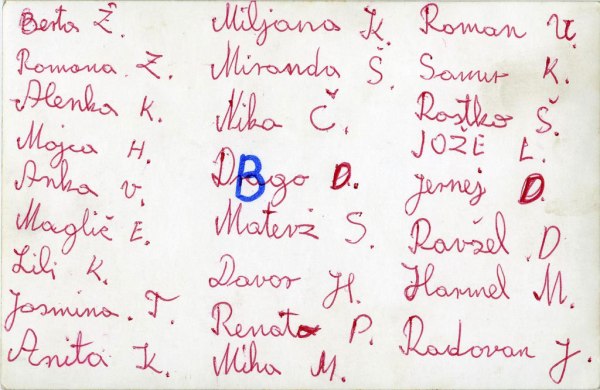 Berta Ž.
Romana Z.
Alenka K.
Mojca H.
Anka V.
Maglič E.
Lili K.
Jasmina T.
Anita K.
Miljana K.
Miranda Š.
Nika Č.
Drago D.
B
Matevž S.
Davor H.
Renato P.
Miha M.
Roman U.
Samir K.
Rastko Š.
JOŽE L.
Jernej D.
Ravšel D
Harmel M.
Radovan J.